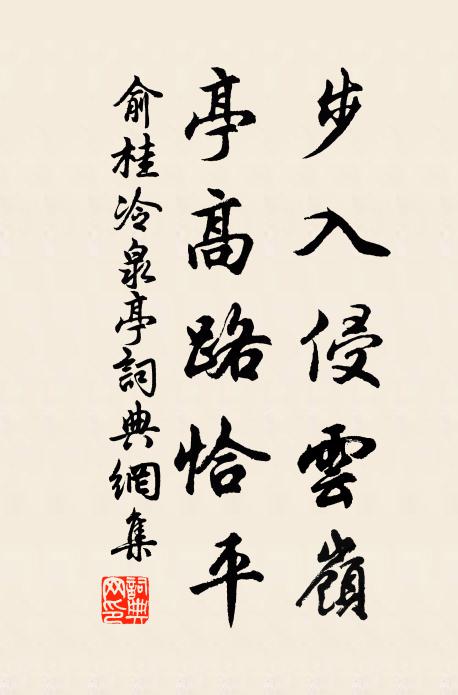 步入侵雲嶺
亭高路恰平
俞桂冷泉亭詞典網集
詞典網印